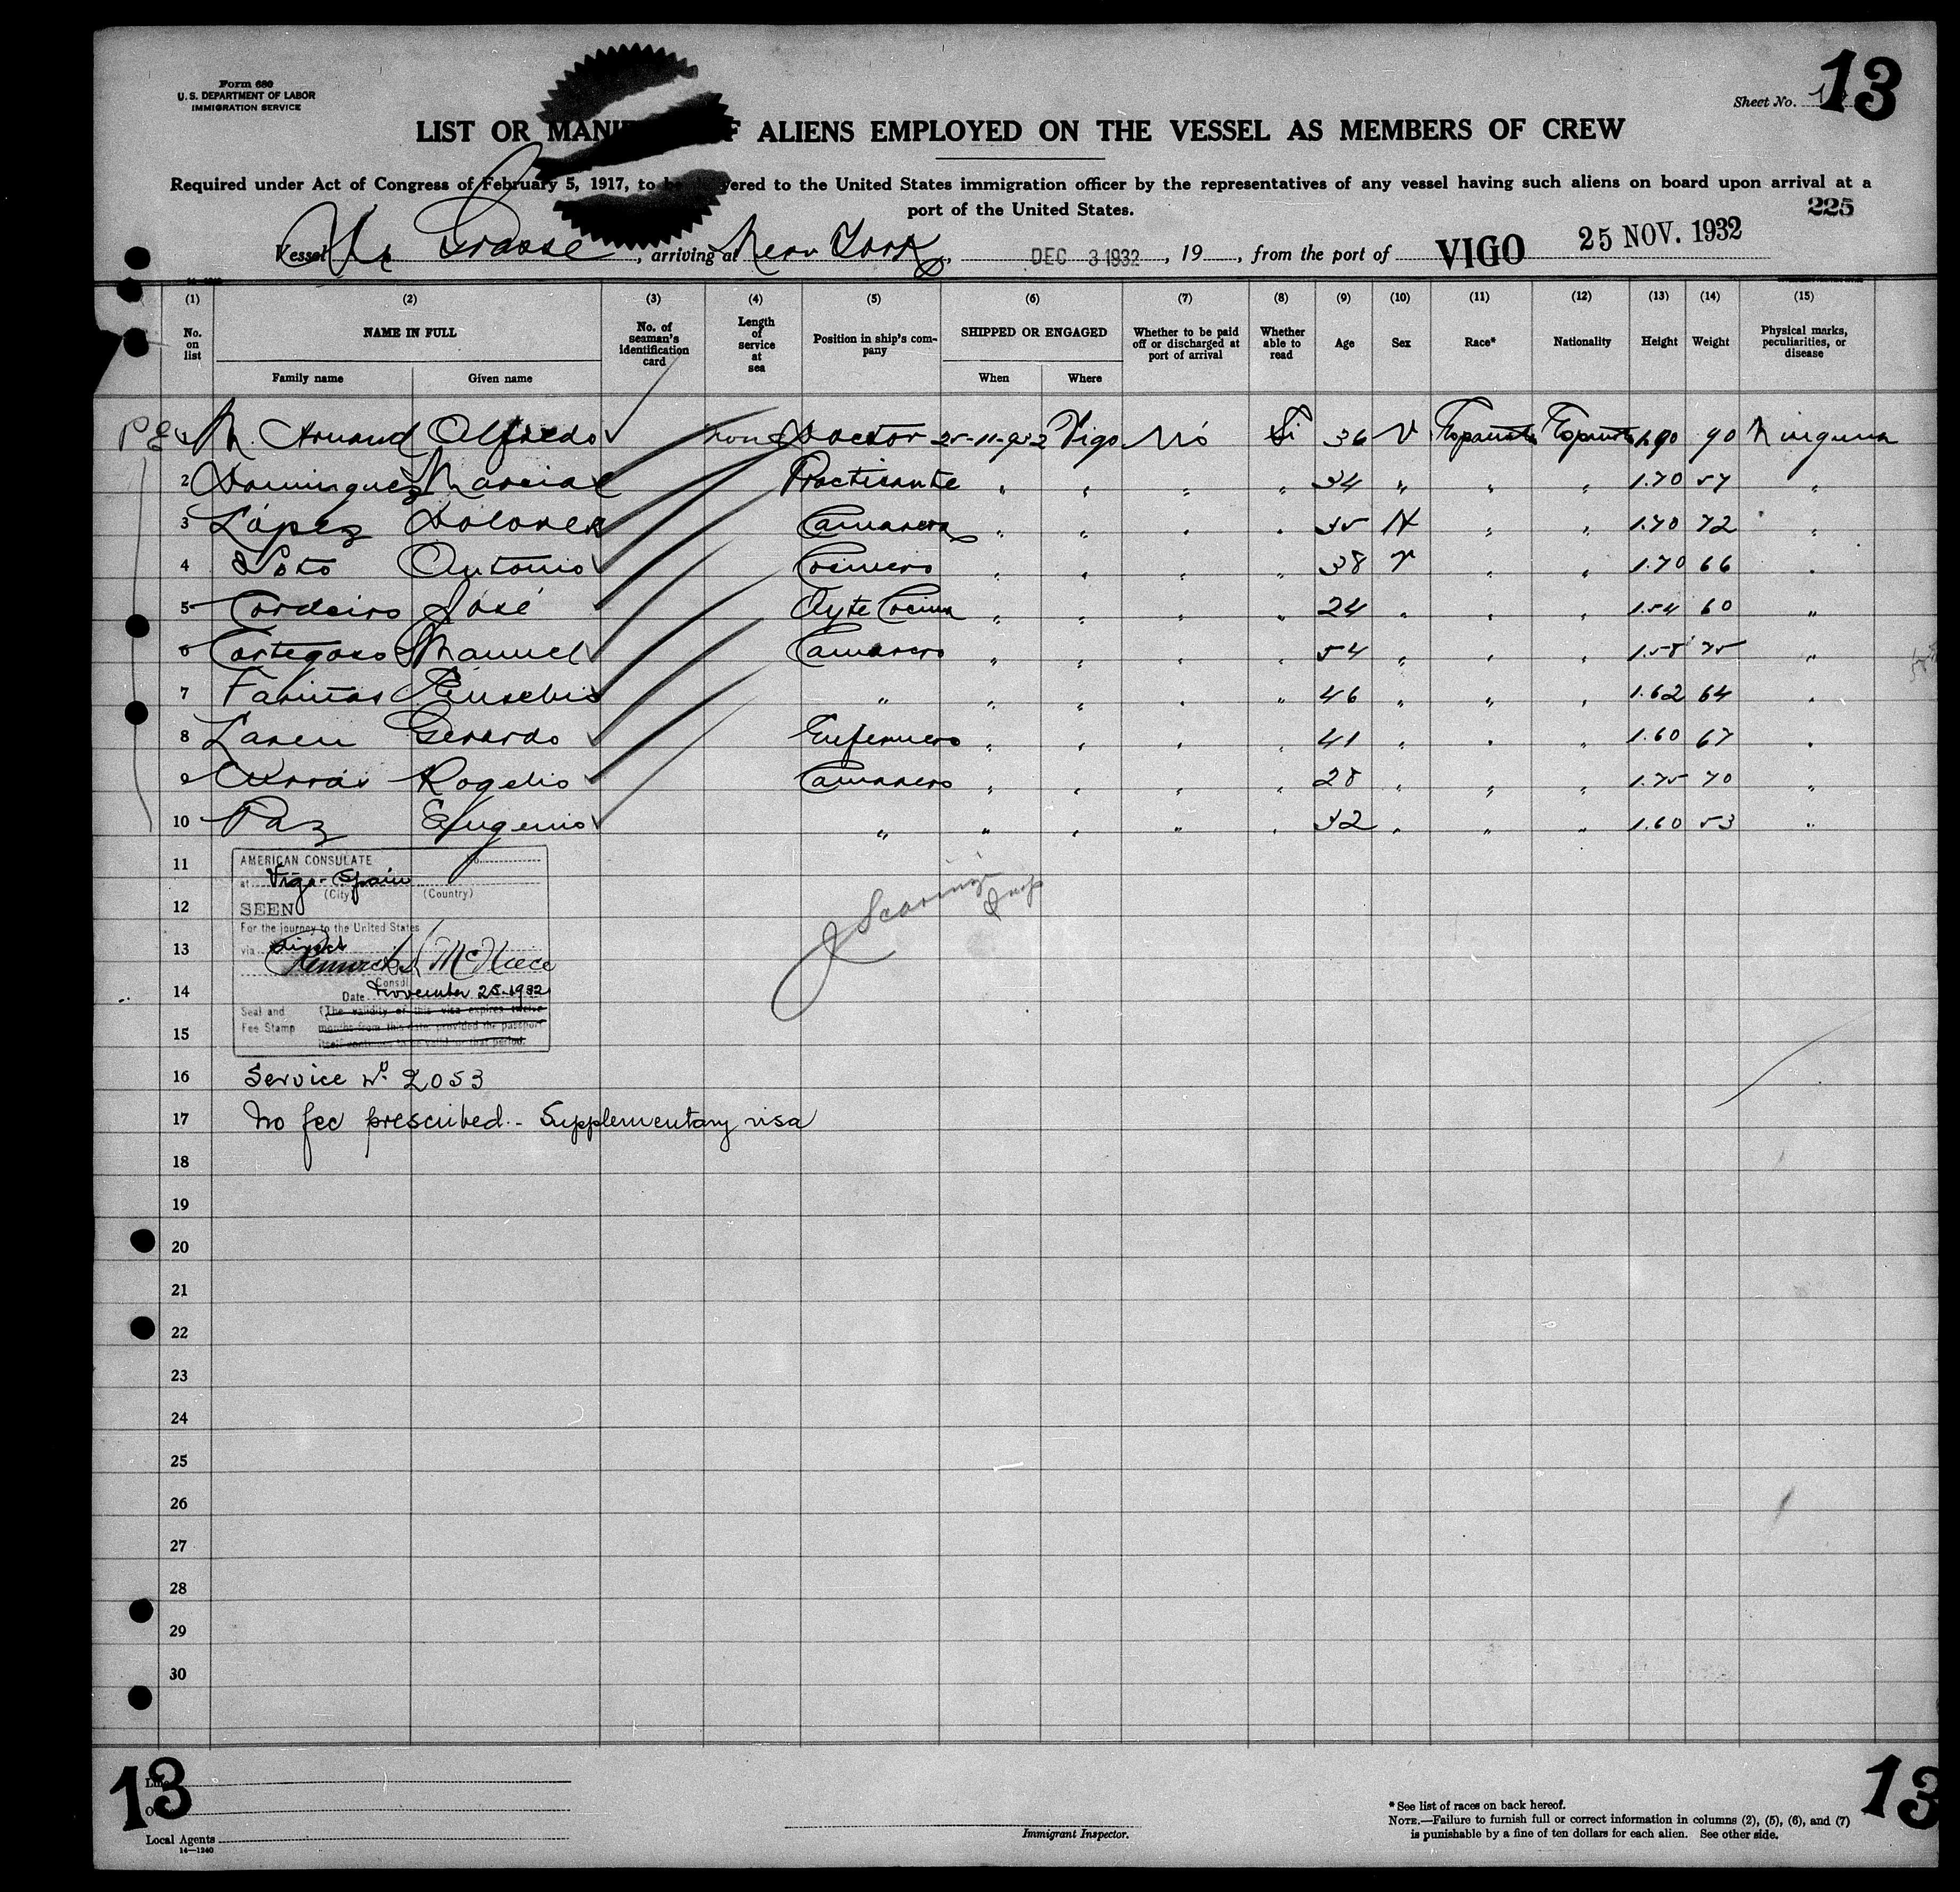 Form 680
U. S. DEPARTMENT OF LABOR
IMMIGRATION SERVICE
Sheet No. 13
LIST OR MANI F ALIENS EMPLOYED ON THE VESSEL AS MEMBERS OF CREW
Required under Act of Congress of February 5, 1917, to be vered to the United States immigration officer by the representatives of any vessel having such aliens on board upon arrival at a
port of the United States.
225
Vessel Grasse, arriving at New York, DEC 3 1932, 19, from the port of VIGO 25 NOV. 1932
(1) (2) (3) (4) (5) (6) (7) (8) (9) (10) (11) (12) (13) (14) (15)
No. on list NAME IN FULL No. of seaman's identification card Length of service at sea Position in ship's company SHIPPED OR ENGAGED Whether to be paid off or discharged at port of arrival Whether able to read Age Sex Race* Nationality Height Weight Physical marks, peculiarities, or disease
Family name Given name When Where
M. Arnaud Alfredo Doctor 25-11-932 Vigo Nó Si 36 V Española Española 1.90 90 Ninguna
2 Dominguez Marcial Practicante " " " " 34 " " " 1.70 57 "
3 López Dolores Camarera " " " " 35 H " " 1.70 72 "
4 Soto Antonio Cocinero " " " " 38 V " " 1.70 66 "
5 Cordeiro José Ayte Cocina " " " " 24 " " " 1.54 60 "
6 Cortegoso Manuel Camarero " " " " 54 " " " 1.58 75 "
7 Fariñas Eusebio " " " " " 46 " " " 1.62 64 "
8 Gerardo Enfermero " " " " 41 " " " 1.60 67 "
9 Currás Rogelio Camarero " " " " 28 " " " 1.75 70 "
10 Paz Eugenio " " " " " 32 " " " 1.60 53 "
11
12
13
14
15
AMERICAN CONSULATE No.
at Vigo - Spain
(City) (Country)
SEEN
For the journey to the United States
via direct
McNiece
Consul
Date November 25-1932
Seal and Fee Stamp (The validity of this visa expires twelve
months from this date, provided the passport
itself continues to be valid for that period.
16 Service Nº 2053
17 No fee prescribed.- Supplementary visa
18
19
20
21
22
23
24
25
26
27
28
29
30
13
13
Local Agents
14—1240
Immigrant Inspector.
* See list of races on back hereof.
NOTE.—Failure to furnish full or correct information in columns (2), (5), (6), and (7)
is punishable by a fine of ten dollars for each alien. See other side.